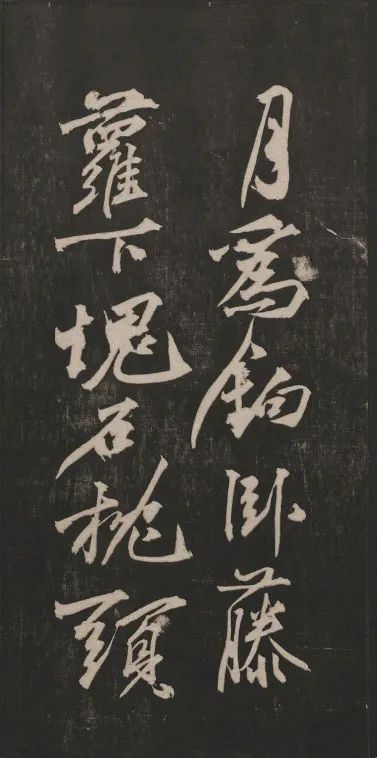 月爲鉤卧藤
蘿下塊石枕頭